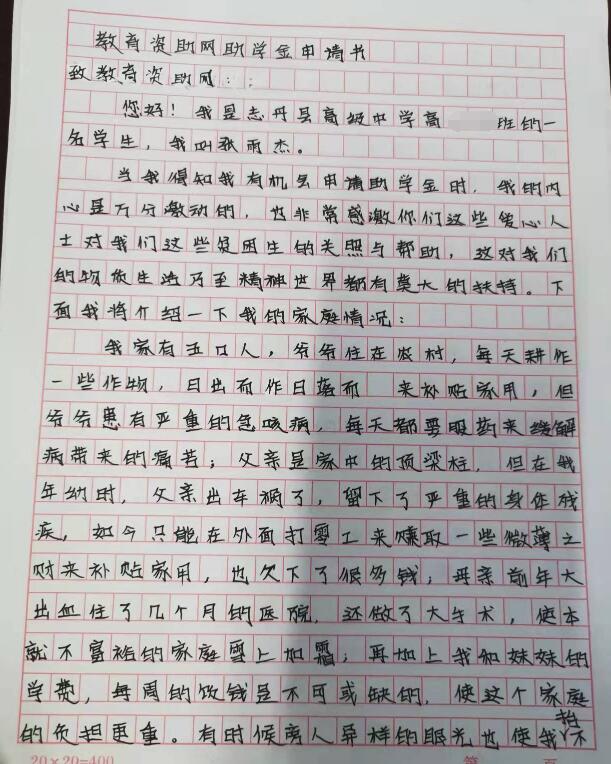 教育资助网助学金申请书
致教育资助网：：
您好！我是志丹县高级中学高 班的一
名学生，我叫张雨杰。
当我得知我有机会申请助学金时，我的内
心是万分激动的，也非常感激你们这些爱心人
士对我们这些贫困生的关照与帮助，这对我们
的物质生活乃至精神世界都有莫大的扶持。下
面我将介绍一下我的家庭情况：
我家有五口人，爷爷住在农村，每天耕作
一些作物，日出而作日落而 来补贴家用，但
爷爷患有严重的急咳病，每天都要服药来缓解
病带来的痛苦；父亲是家中的顶梁柱，但在我
年幼时，父亲出车祸了，留下了严重的身体残
疾，如今只能在外面打零工来赚取一些微薄之
财来补贴家用，也欠下了很多钱，母亲前年大
出血住了几个月的医院，还做了大手术，使本
就不富裕的家庭雪上加霜；再加上我和妹妹的
学费，每周的饭钱是不可或缺的，使这个家庭
的负担更重。有时候旁人异样的眼光也使我抬不
20×20=400 第 页